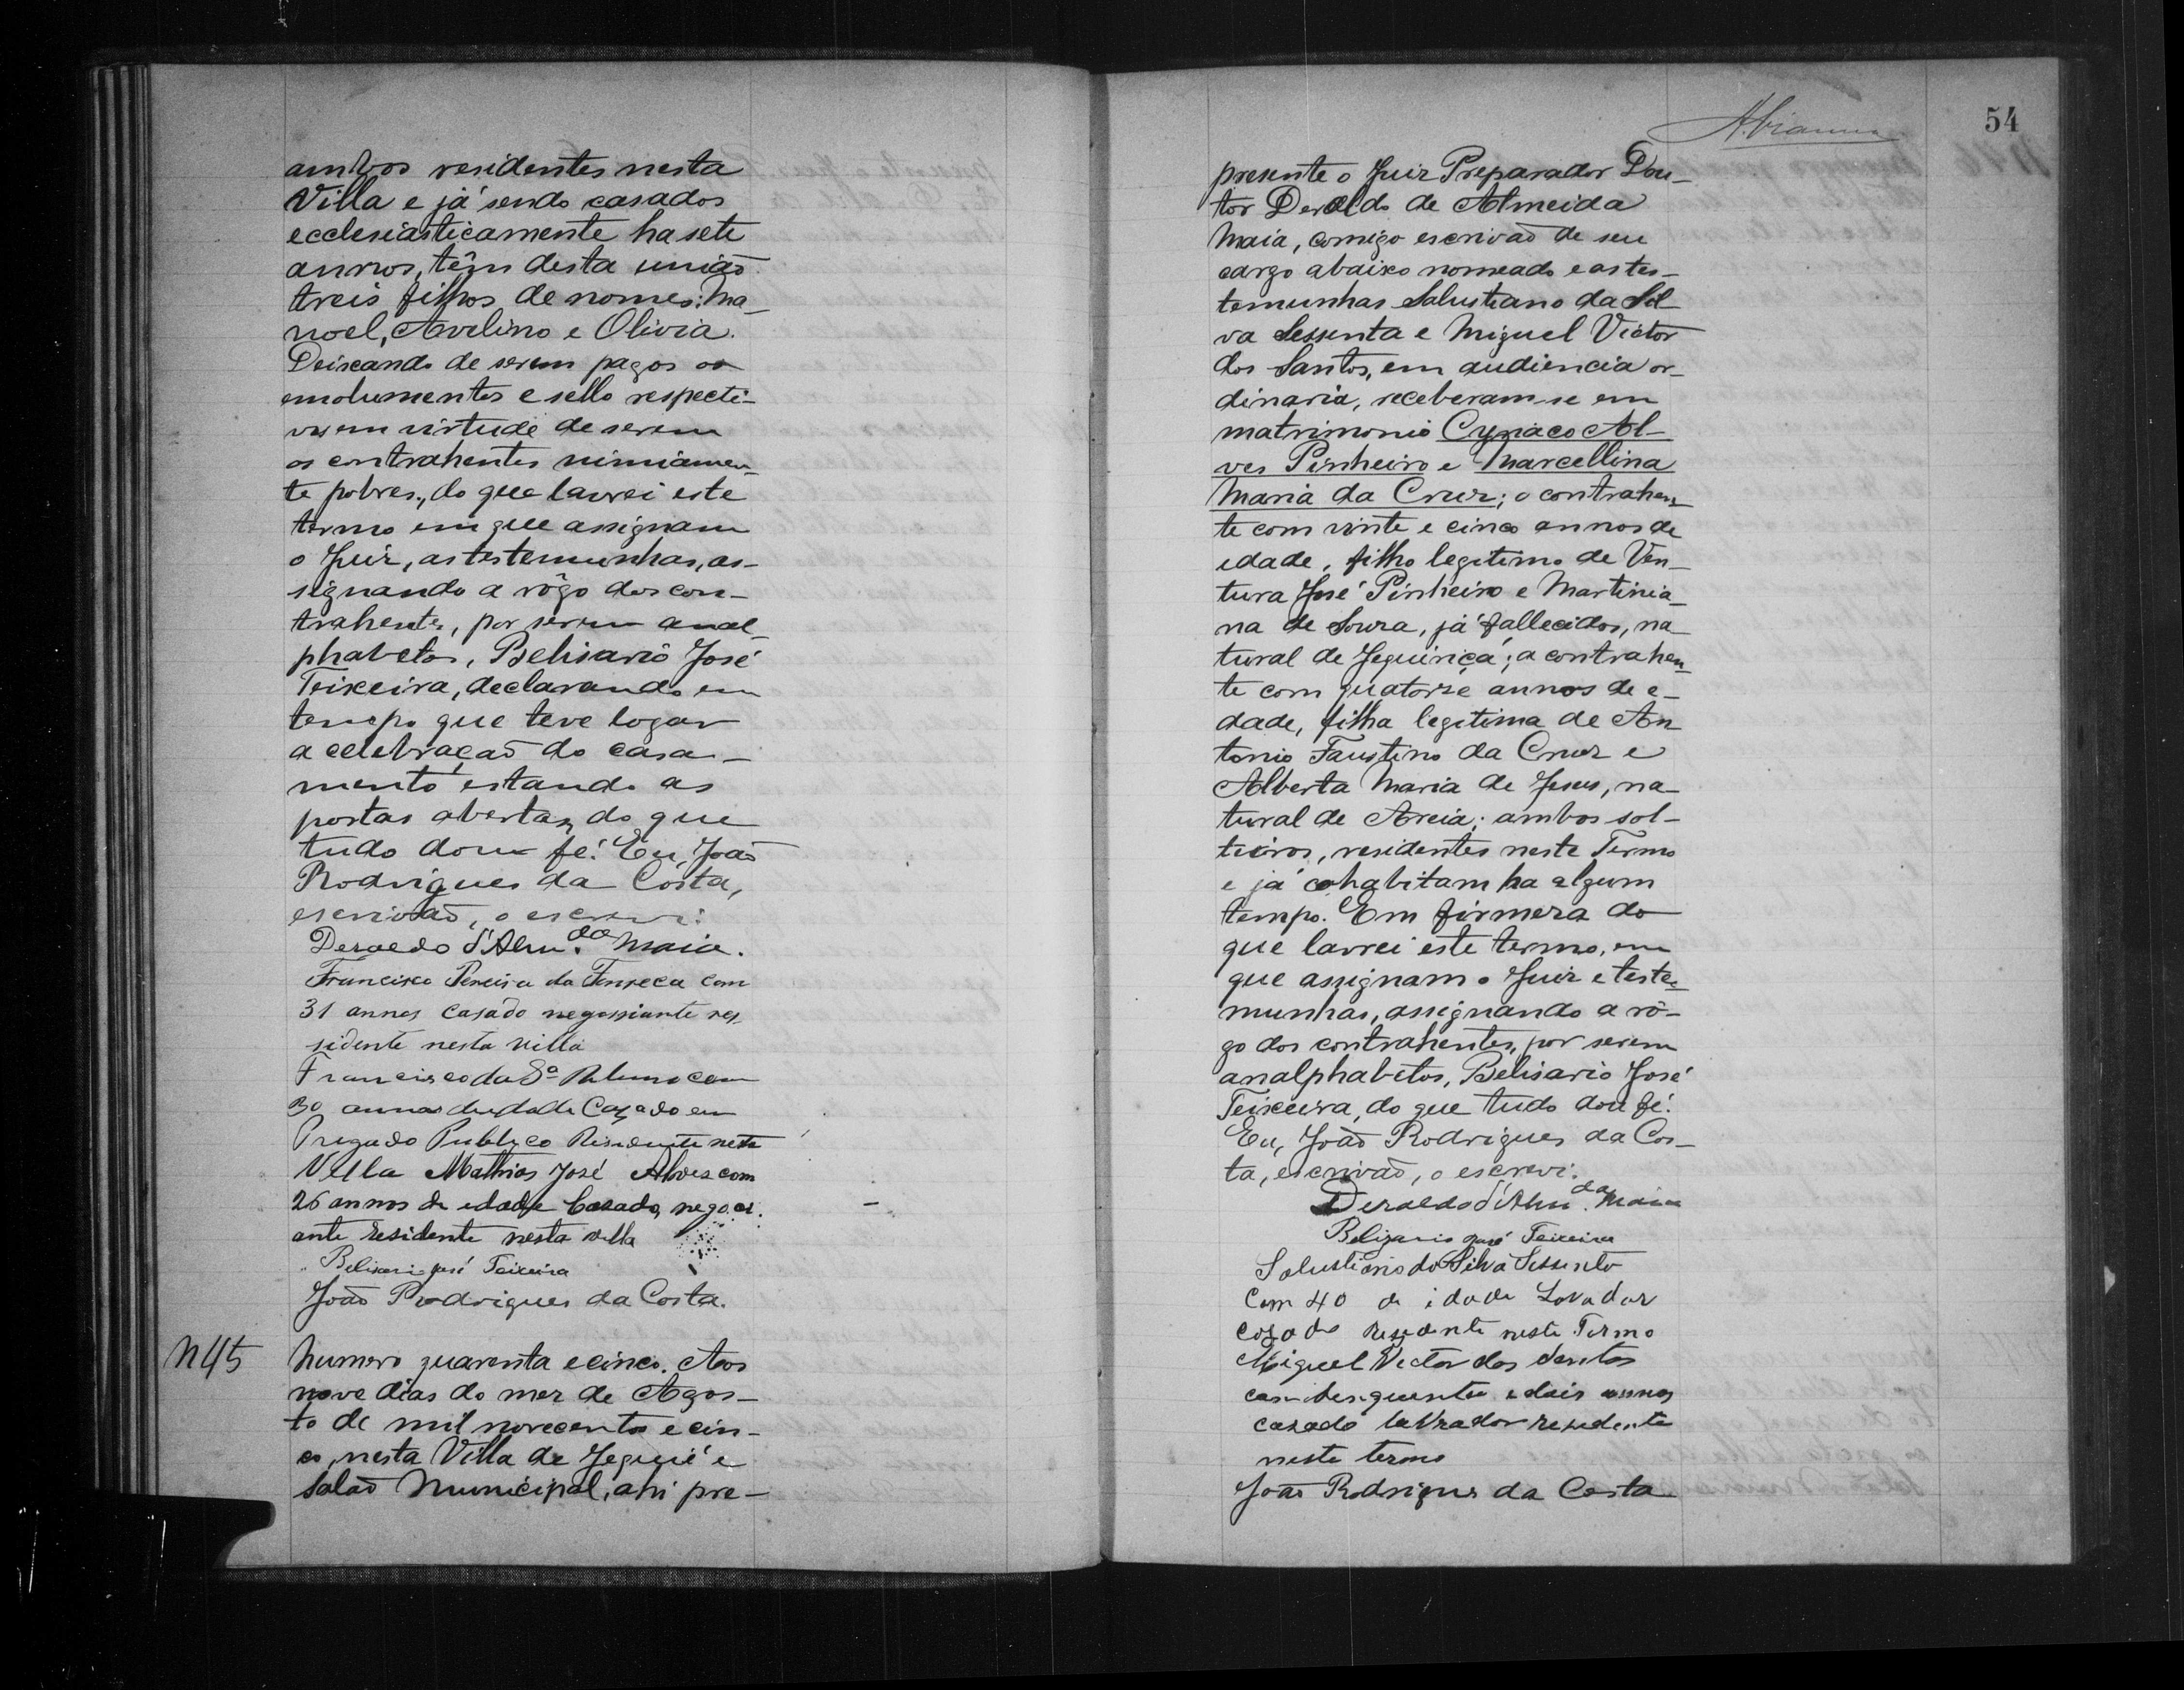 ambos residentes nesta
Villa e já sendo casados
ecclesiasticamente ha sete
annos, têm desta união
treis filhos de nomes: Ma-
noel, Avelino e Olivia.
Deixando de serem pagos os
emolumentos e sello respecti-
vos em virtude de serem
os contrahentes nimiamen-
te pobres, do que lavrei este
termo em que assignam
o Juiz, as testemunhas, as-
signando a rôgo dos con-
trahentes, por serem anal-
phabetos, Belisario José
Teixeira, declarando em
tempo que teve logar
a celebração do casa-
mento estando as
portas abertas, do que
tudo dou fé. Eu, João
Rodrigues da Costa,
escrivão, o escrevi.
Deraldo d'Alm.da Maia.
Francisco Pereira da Fonseca com
31 annos casado negossiante res
sidente nesta villa
Francisco da Sª com
30 annos de idade Cazado em
Pregado Publyco Residente nesta
Villa Mathias José Alves com
26 annos de edade Casado, negoci
ante residente nesta villa
Belisario José Teixeira
João Rodrigues da Costa.
N 45
Numero quarenta e cinco. Aos
nove dias do mez de Agos-
to de mil novecentos e cin-
co, nesta Villa de Jequié e
Salão Municipal, ahi pre-
54
presente o Juiz Preparador Dou-
tor Deraldo de Almeida
Maia, comigo escrivão de seu
cargo abaixo nomeado e as tes-
temunhas Salustiano da Sil-
va Sessenta e Miguel Victor
dos Santos, em audiencia or-
dinaria, receberam-se em
matrimonio Cyriaco Al-
ves Pinheiro e Marcellina
Maria da Cruz; o contrahen-
te com vinte e cinco annos de
idade, filho legitimo de Ven-
tura José Pinheiro e Martinia-
na de Souza, já fallecidos, na-
tural de Jequiriçá; a contrahen-
te com quatorze annos de e-
dade, filha legitima de An-
tonio Faustino da Cruz e
Alberta Maria de Jesus, na-
tural de Areia; ambos sol-
teiros, residentes neste Termo
e já cohabitam ha algum
tempo. Em firmeza do
que lavrei este termo, em
que assignam o Juiz e teste-
munhas, assignando a rô-
go dos contrahentes, por serem
analphabetos, Belisario José
Teixeira, do que tudo dou fé.
Eu, João Rodrigues da Cos-
ta, escrivão, o escrevi.
Deraldo d'Alm.da Maia
Belizario José Teixeira
Salustiano da Silva Sessenta
Com 40 de idade Lavador
cazado Resedente neste Termo
Miguel Victor dos Santos
com sinquenta e dois annos
cazado lavrador resedente
neste termo
João Rodrigues da Costa